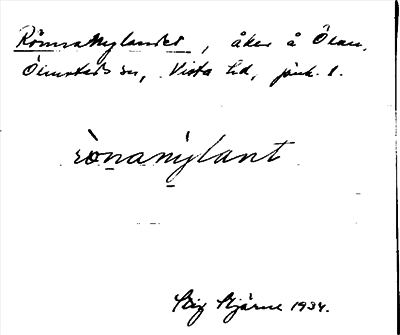 Rönnanylandet, åker å Ölan,
Ölmstads sn, Vista hd, jönk. l.
rònanýlant
Stig Stjärne 1934.